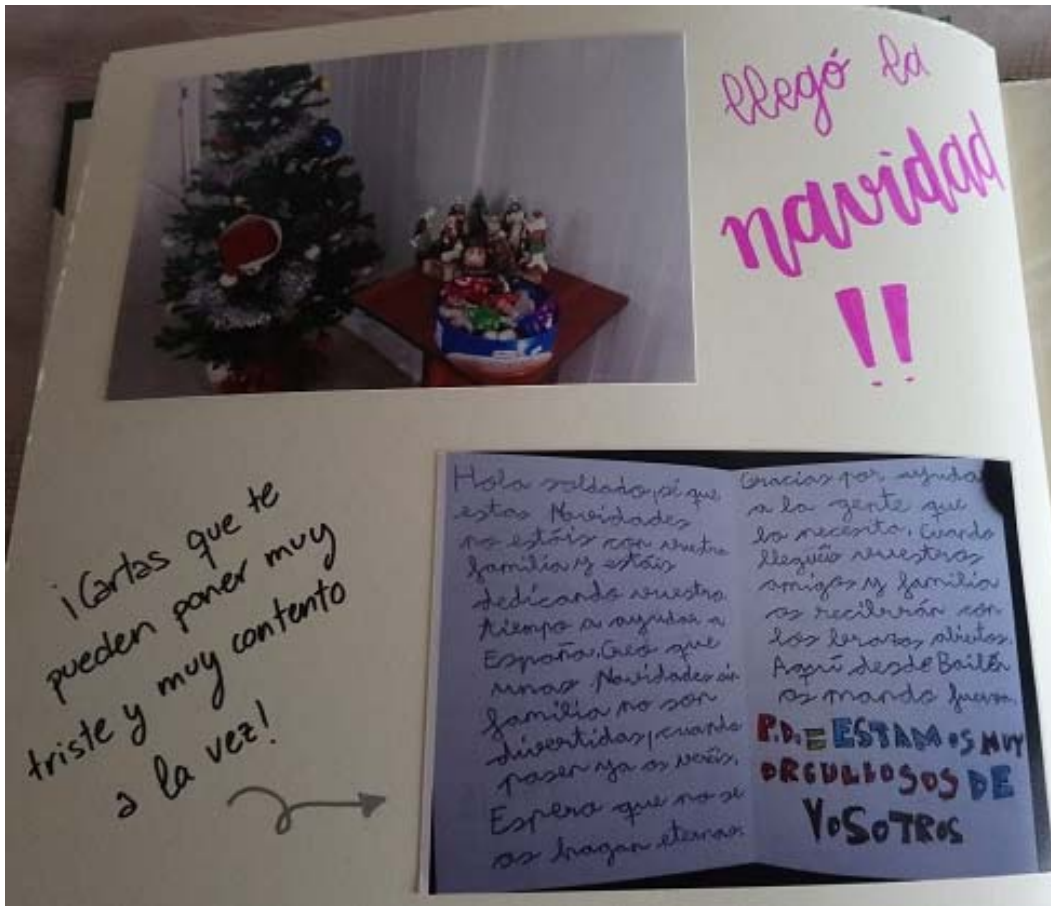 llegó la
navidad
!!
¡Cartas que te
pueden poner muy
triste y muy contento
a la vez!
Hola soldado, sé que
estas Navidades
no estáis con vuestra
familia y estáis
dedicando vuestro
tiempo a ayudar a
España. Creo que
unas Navidades sin
familia no son
divertidas, cuando
pasen ya os veréis.
Espero que no se
os hagan eternas.
Gracias por ayudar
a la gente que
lo necesita. Cuando
lleguéis vuestros
amigos y familia
os recibirán con
los brazos abiertos.
Aquí desde Bailén
os mando fuerza.
P.D.= ESTAMOS MUY
ORGULLOSOS DE
VOSOTROS